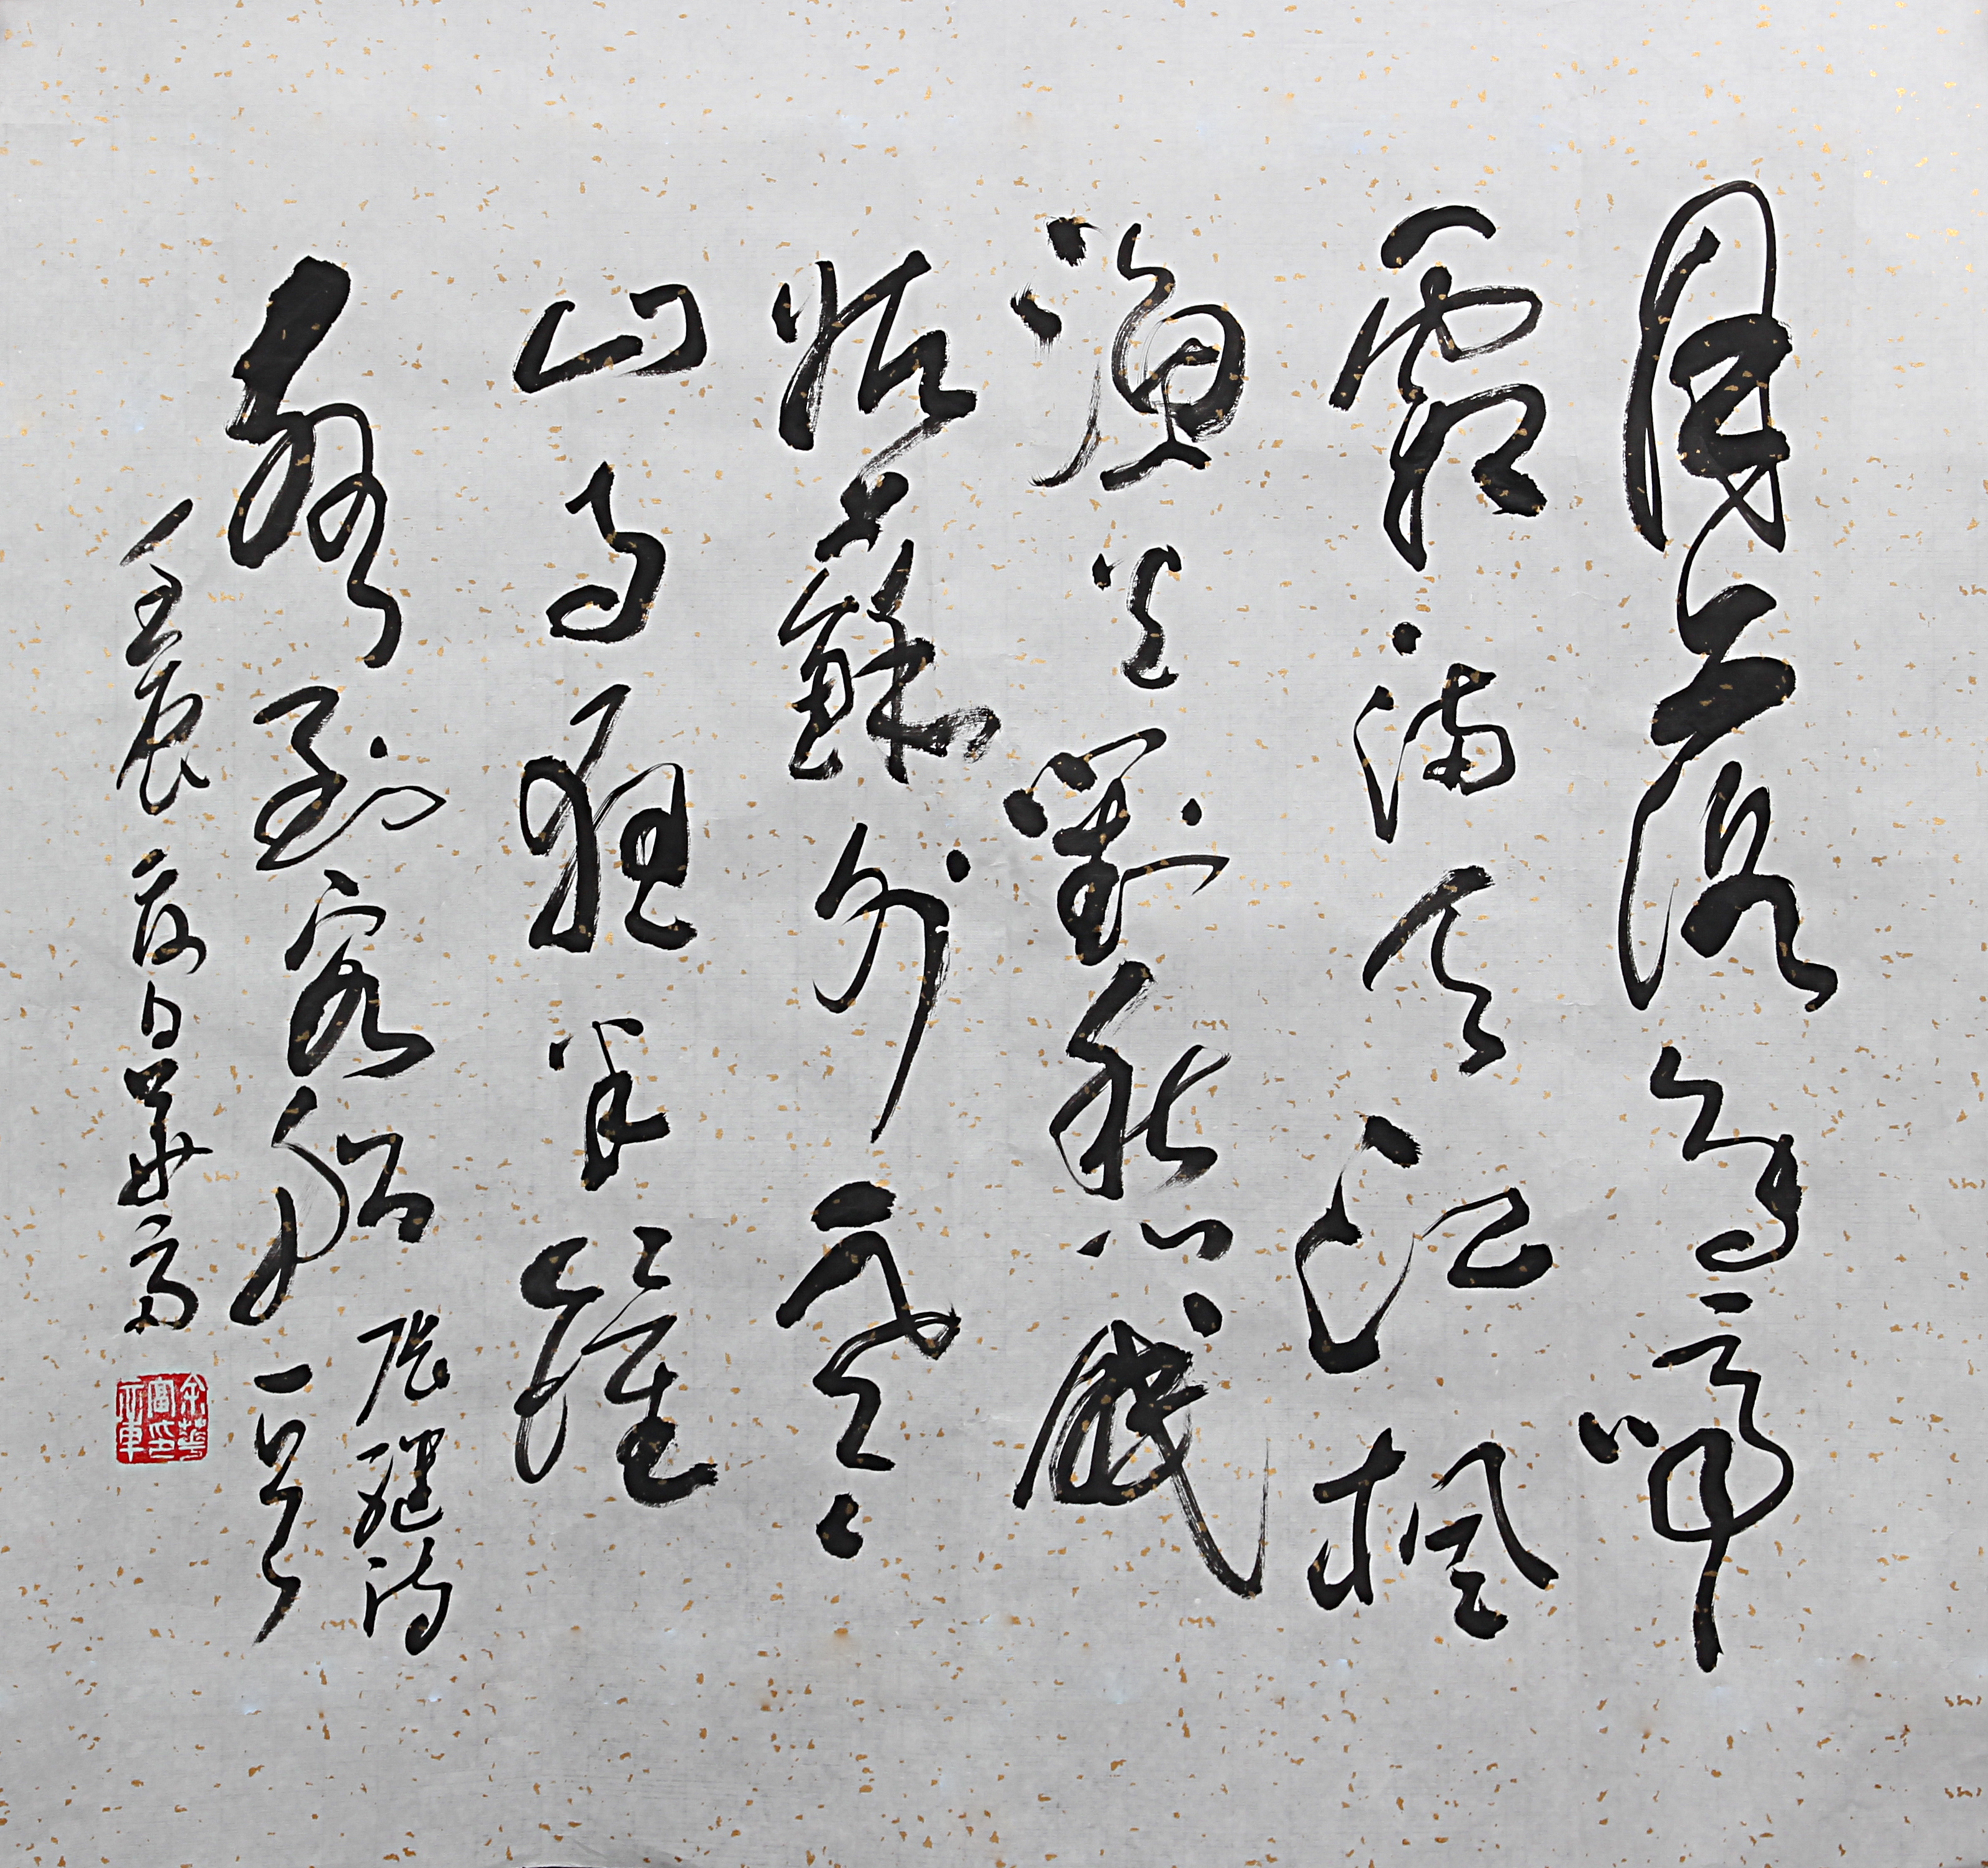 月落烏啼
霜滿天江楓
漁火對愁眠
姑蘇外寒
山寺夜半鐘
聲到客船
張繼詩
一首
壬辰夏日華富
余華富印